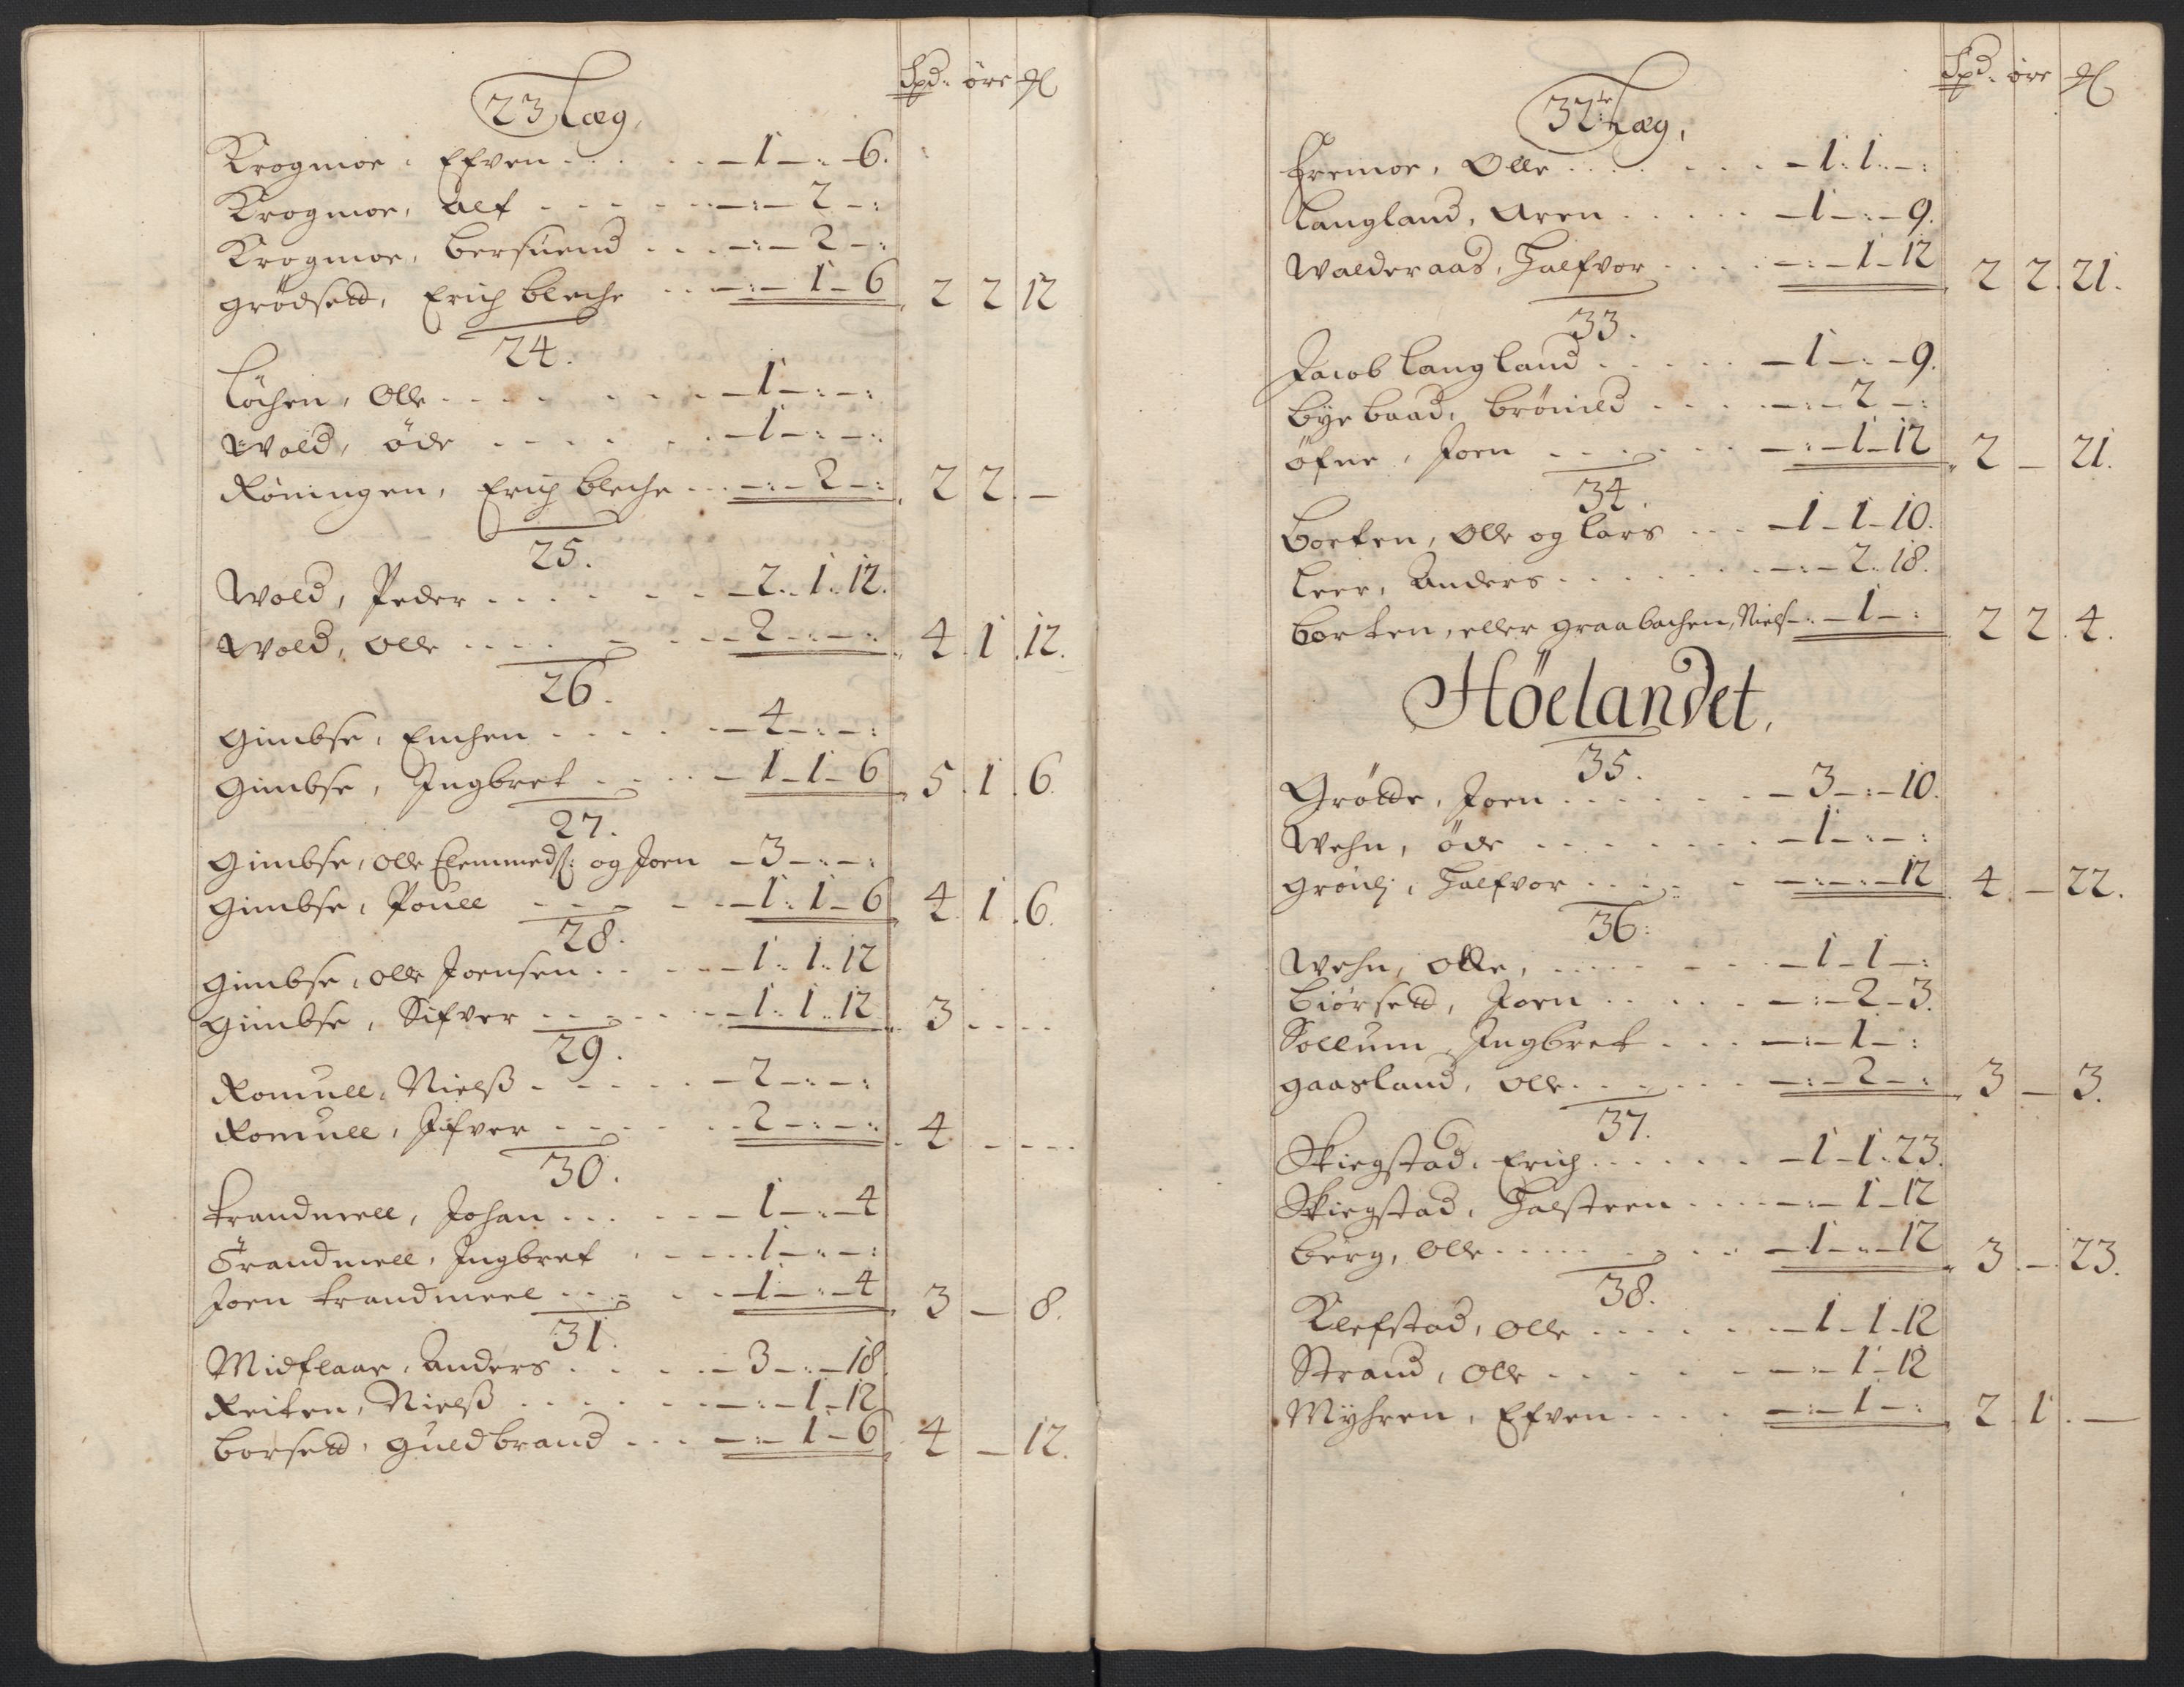 Spd: öre
23 Læg,
Krogmoe, Efven . . . . - 1 - : - 6.
Krogmoe, Alf - - - - - : - 2 - :
Krogmoe, Bersuend . . . - : - 2 - :
Grödsett, Erich Bleche . . - : - 1 - 6 2 2 12
24.
Löchen, Olle . . . . - 1 - : - :
Wold, öde . . . . - 1 - : - :
Röningen, Erich Bleche . . - : - 2 - : 2 2 . -
25.
Wold, Peder . . . . - 2 . 1 . 12.
Wold, Olle . . . . - 2 - : - : 4 . 1 . 12.
26.
Gimbse, Enchen . . . . - 4 - : - :
Gimbse, Ingbret . . . - 1 - 1 - 6 5 . 1 . 6.
27.
Gimbse, Olle Clemmeds: og Joen - 3 - : - :
Gimbse, Pouell . . . . - 1 : 1 - 6 4 . 1 . 6.
28.
Gimbse, Olle Joensen . . . - 1 . 1 . 12
Gimbse, Sifver . . . . - 1 . 1 . 12 3 . . .
29.
Romull, Nielß . . . . - 2 - : - :
Romull, Ifver . . . . - 2 - : - : 4 - - -
30.
Trandmell, Johan . . . - 1 - : - 4
Trandmell, Ingbret . . . - 1 - : - :
Joen Trandmeel . . . - 1 - : - 4 3 - 8.
31.
Midflaae, Anders . . . - 3 - : - 18
Reiten, Nielß . . . . - : - 1 - 12
Borsett, Guldbrand . . . - : - 1 - 6 4 - 12.
Spd: öre
32te Læg,
Fremoe, Olle . . . . - 1 : 1 . - :
Langland, Aren . . . . - 1 - : - 9.
Walderaas, Halfvor . . . - : - 1 - 12 2 2 . 21.
33.
Jacob Langland . . . . - 1 - : - 9.
Byebaad, Brönild . . . - : - 2 - :
Öfne, Joen . . . . - : - 1 - 12 2 - 21.
34.
Borten, Olle og Lars . . . - 1 - 1 - 10.
Leer, Anders . . . . - : - 2 . 18.
Borten, eller Graabachen, Niels - : - 1 - : 2 2 . 4.
Höelandet,
35.
Grötte, Joen . . . . - 3 - : - 10.
Wehn, öde . . . . - 1 - : - :
Grönlj, Halfvor . . . . - : - : - 12 4 . - 22.
36.
Wehn, Olle, . . . . - 1 - 1 - :
Biörsett, Joen . . . . - : - 2 - 3.
Sollum, Ingbret . . . - : - 1 - :
Gaasland, Olle . . . . - : - 2 - : 3 - 3.
37.
Skiegstad, Erich . . . . - 1 - 1 . 23.
Skiegstad, Halsteen . . . - : - 1 - 12
Berg, Olle . . . . - 1 - : - 12 3 . - 23.
38.
Klefstad, Olle . . . . - 1 - 1 - 12
Strand, Olle . . . . - : - 1 - 12
Myhren, Efven . . . . - : - 1 - : 2 . 1 . -